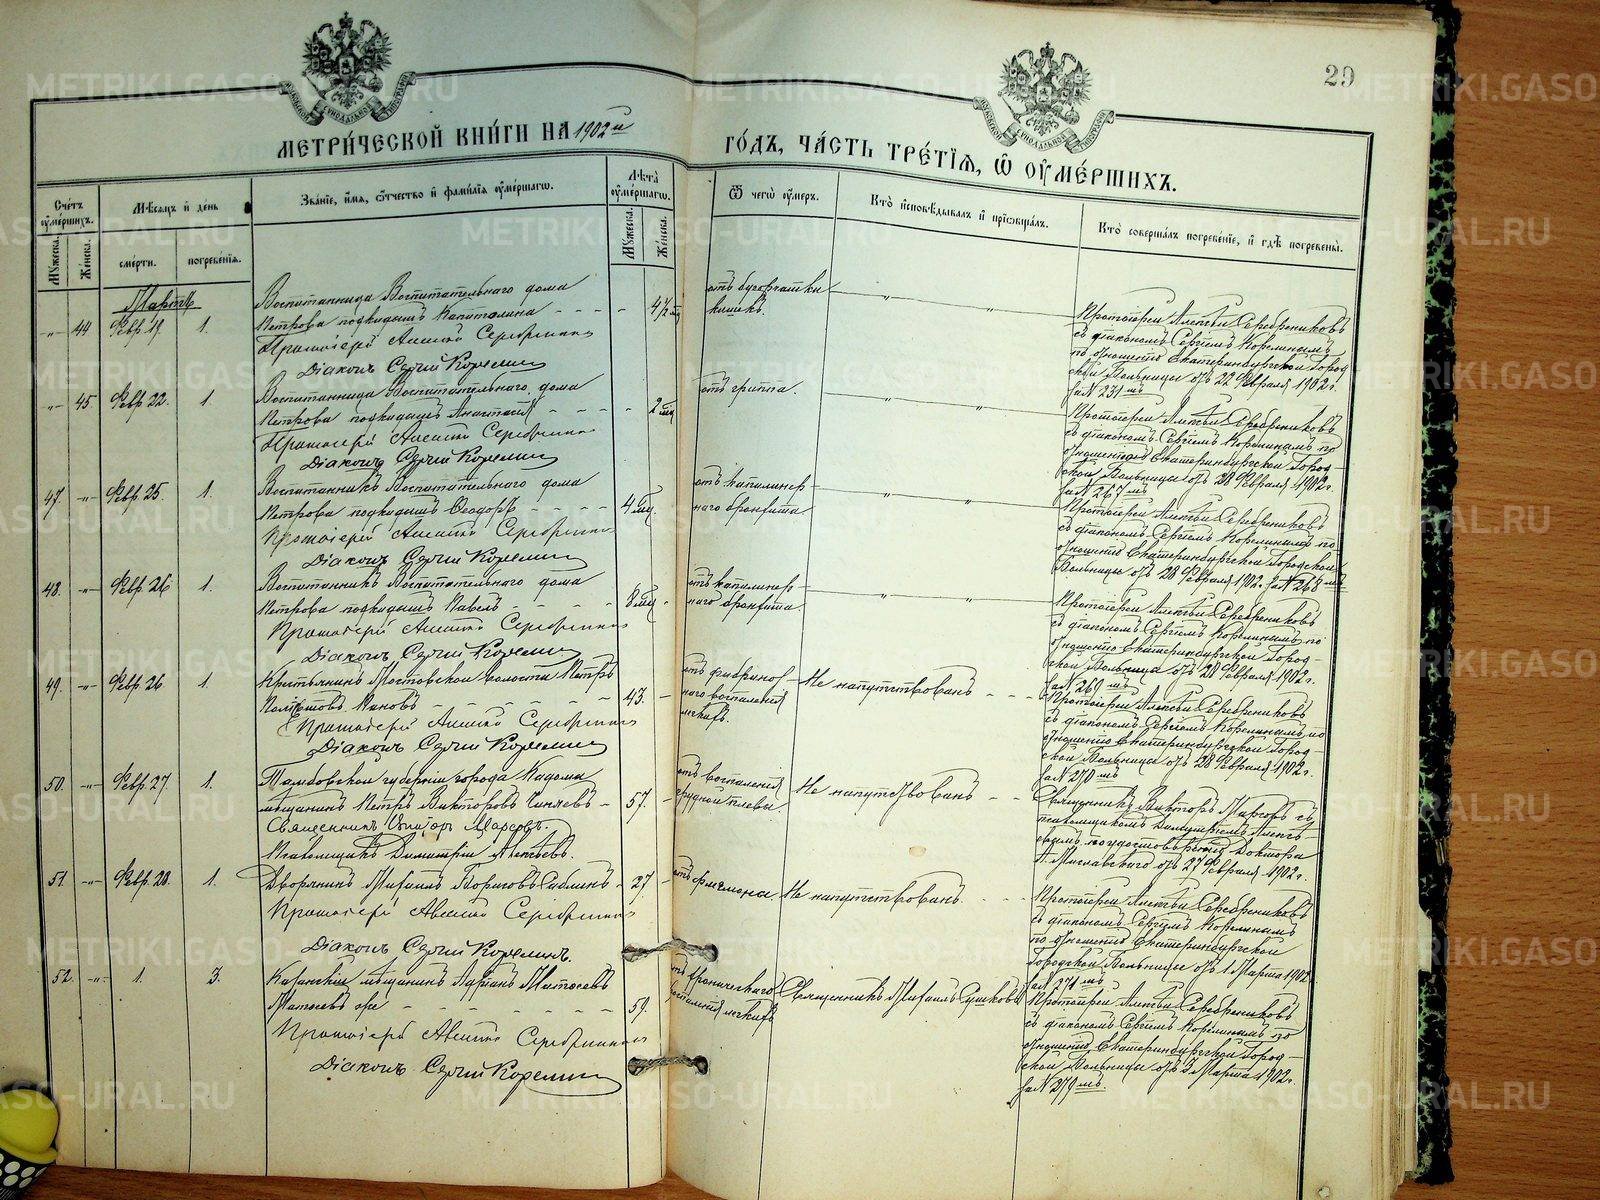 29
МЕТРИ́ЧЕСКОЙ КНИ́ГИ НА 1902й ГО́ДЪ, ЧА́СТЬ ТРЕ́ТІѦ, Ѡ ОУМЕ́РШИХЪ.
Счетъ оумершихъ.
Мужеска.
Женска.
Мѣсяцъ и день
смерти.
погребенія.
Званіе, имя, отчество и фамилія оумершагѡ.
Лѣта оумершагѡ.
Мужеска.
Женска.
Ѿ чегѡ оумеръ.
Ктѡ исповѣдывалъ и пріобщалъ.
Ктѡ совершалъ погребеніе, и гдѣ погребены.
Мартъ
„ 44 Февр. 19. 1.
Воспитанница Воспитательнаго дома
Петрова подкидышъ Капитолина
Протоіерей Алексій Серебренниковъ
Діаконъ Сергій Корелинъ
отъ бугорчатки
кишекъ.
Протоіерей Алексѣй Серебрениковъ
съ діакономъ Сергіемъ Корелинымъ
по отношенію Екатеринбургской Город-
ской Больницы отъ 22 Февраля 1902 г.
за № 231 мъ
„ 45. Февр. 22. 1.
Воспитанница Воспитательнаго дома
Петрова подкидышъ Анастасія 2 мц
Протоіерей Алексій Серебренниковъ
Діаконъ Сергій Корелинъ
отъ гриппа.
Протоіерей Алексѣй Серебрениковъ
съ діакономъ Сергіемъ Корелинымъ по
отношенію Екатеринбургской Город-
ской Больницы отъ 28 Февраля 1902 г.
за № 267 мъ
47. „ Февр. 25. 1.
Воспитанникъ Воспитательнаго дома
Петрова подкидышъ Ѳеодоръ 4 мц.
Протоіерей Алексій Серебренниковъ
Діаконъ Сергій Корелинъ
отъ капиляр-
наго бронхита
Протоіерей Алексѣй Серебрениковъ
съ діакономъ Сергіемъ Корелинымъ по
отношенію Екатеринбургской Городской
Больницы отъ 28 Февраля 1902 г. за № 268 мъ
48. „ Февр. 26 1.
Воспитанникъ Воспитательнаго дома
Петрова подкидышъ Павелъ 8 мц
Протоіерей Алексій Серебренниковъ
Діаконъ Сергій Корелинъ
отъ капиляр-
наго бронхита.
Протоіерей Алексѣй Серебрениковъ
съ діакономъ Сергіемъ Корелинымъ по
отношенію Екатеринбургской Город-
ской Больницы отъ 28 Февраля 1902 г.
за № 269 мъ
49. „ Февр. 26 1.
Крестьянинъ Мостовской волости Петръ
43.
Протоіерей Алексій Серебренниковъ
Діаконъ Сергій Корелинъ
отъ фибриноз-
наго воспаленія
легкихъ.
Не напутствованъ
Протоіерей Алексѣй Серебрениковъ
съ діакономъ Сергіемъ Корелинымъ по
отношенію Екатеринбургской Город-
ской Больницы отъ 28 Февраля 1902 г.
за № 270 мъ
50. „ Февр. 27. 1.
Тамбовской губерніи города Кадома
мѣщанинъ Петръ Викторовъ 57.
Священникъ Викторъ
Псаломщикъ Димитрій
отъ воспаленія
грудной плевы
Не напутствованъ
Священникъ Викторъ съ
псаломщикомъ Димитріемъ
по удостовѣренію Доктора
отъ 27 Февраля 1902 г.
51. „ Февр. 28. 1.
Дворянинъ Михаилъ Борисовъ 27
Протоіерей Алексій Серебренниковъ
Діаконъ Сергій Корелинъ.
Не напутствованъ
Протоіерей Алексѣй Серебрениковъ
съ діакономъ Сергіемъ Корелинымъ
по отношенію Екатеринбургской
Городской Больницы отъ 1 Марта 1902
за № 271 мъ
52. „ 1. 3.
Казанскій мѣщанинъ
59.
Протоіерей Алексій Серебренниковъ
Діаконъ Сергій Корелинъ
отъ хроническаго
воспаленія легкихъ
Священникъ Михаилъ Сушковъ
Протоіерей Алексѣй Серебрениковъ
съ діакономъ Сергіемъ Корелинымъ по
отношенію Екатеринбургской Город-
ской Больницы отъ Марта 1902 г.
за № 279 мъ.
METRIKI.GASO-URAL.RU